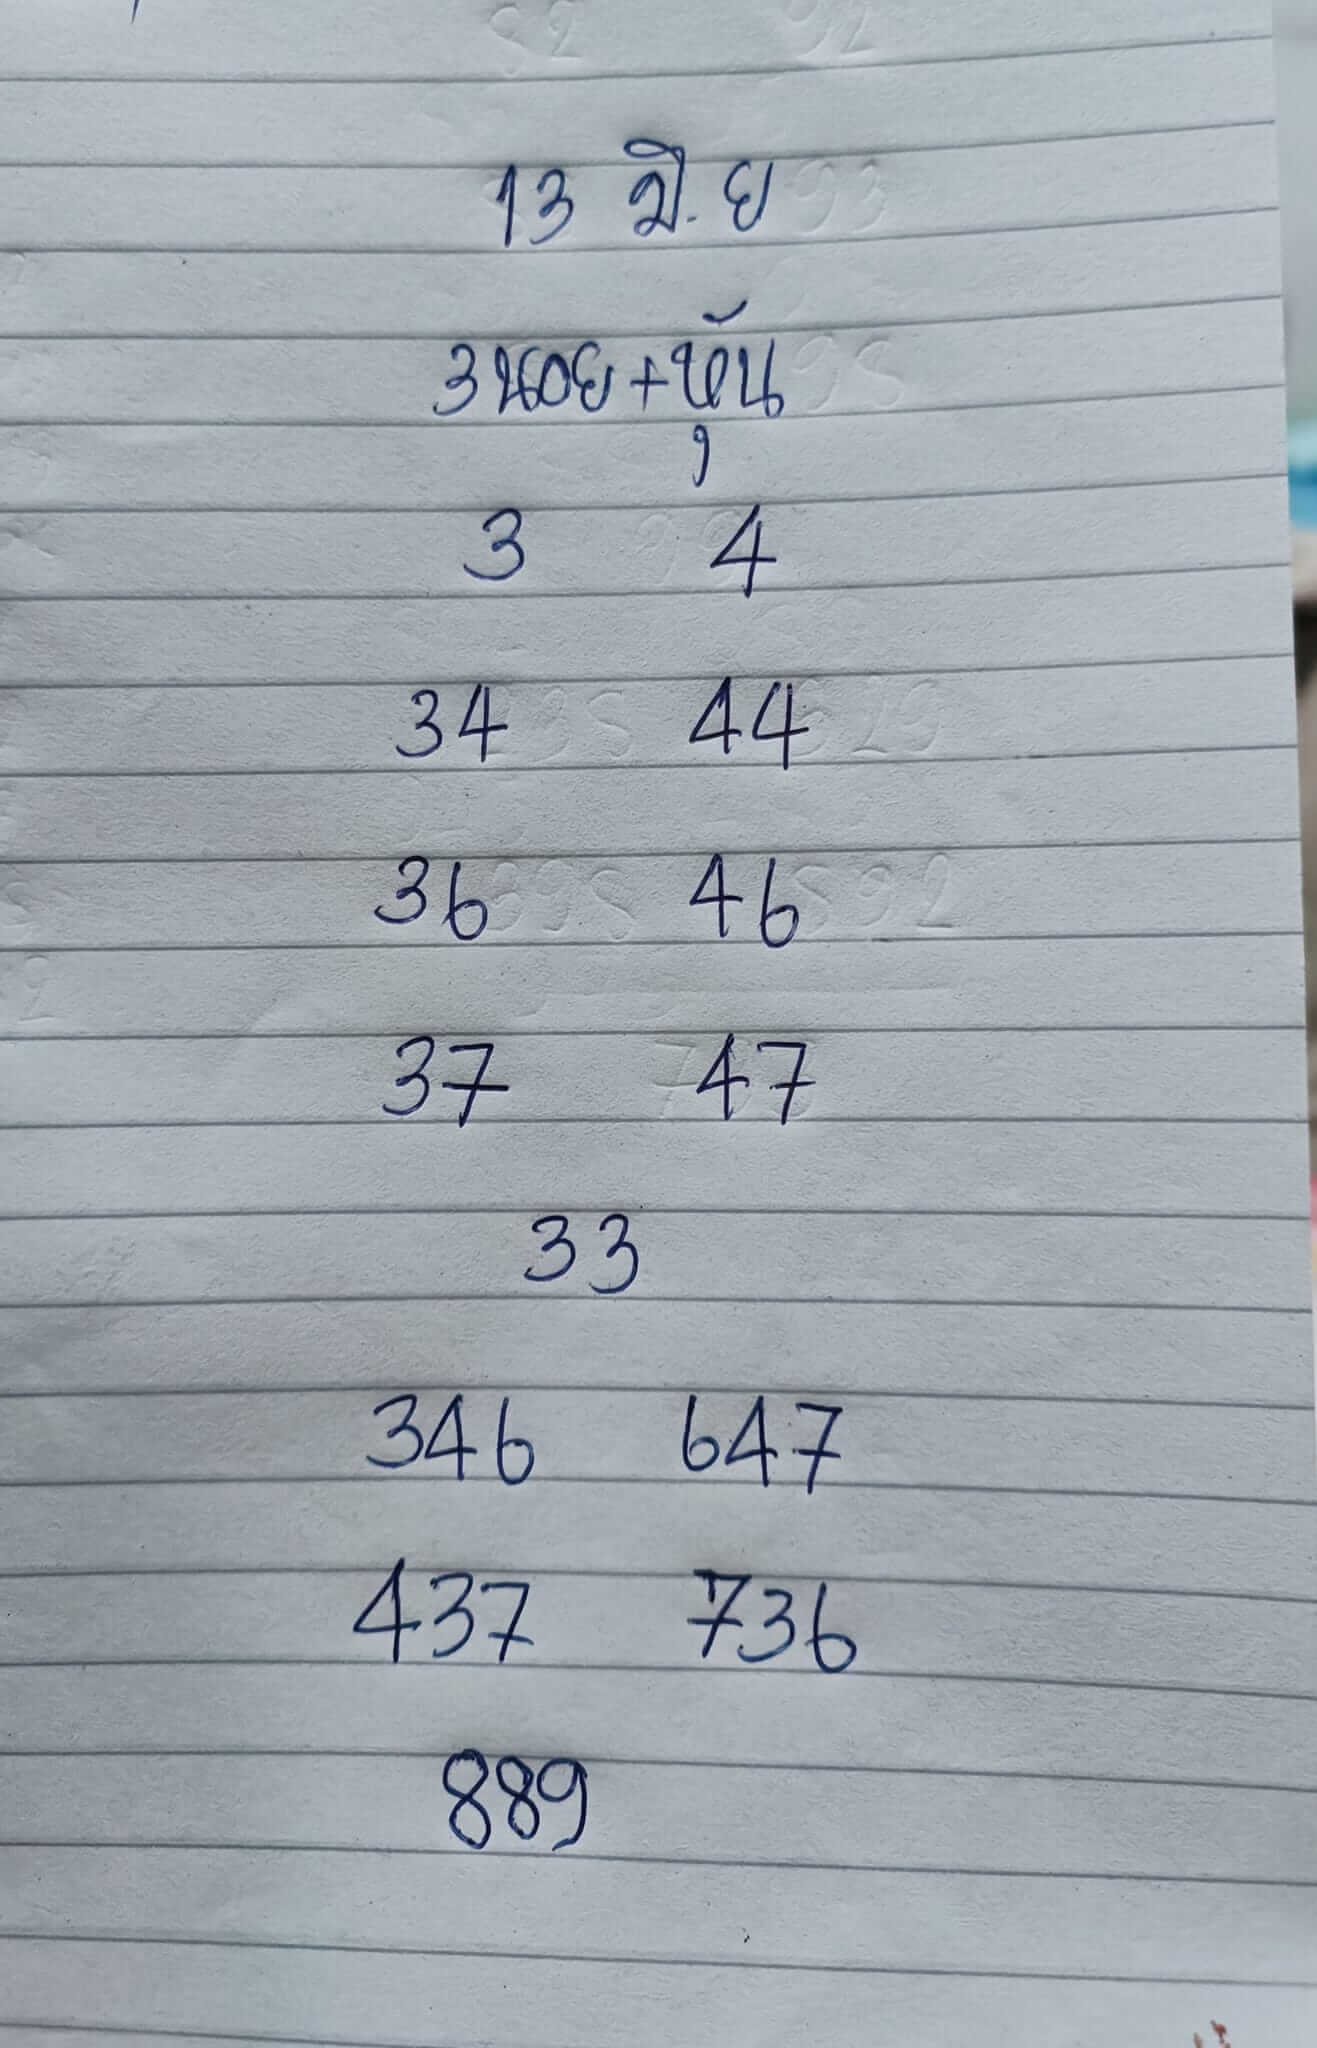 13 มิ.ย
3นอย+หุ้น
3 4
34 44
36 46
37 47
33
346 647
437 736
889